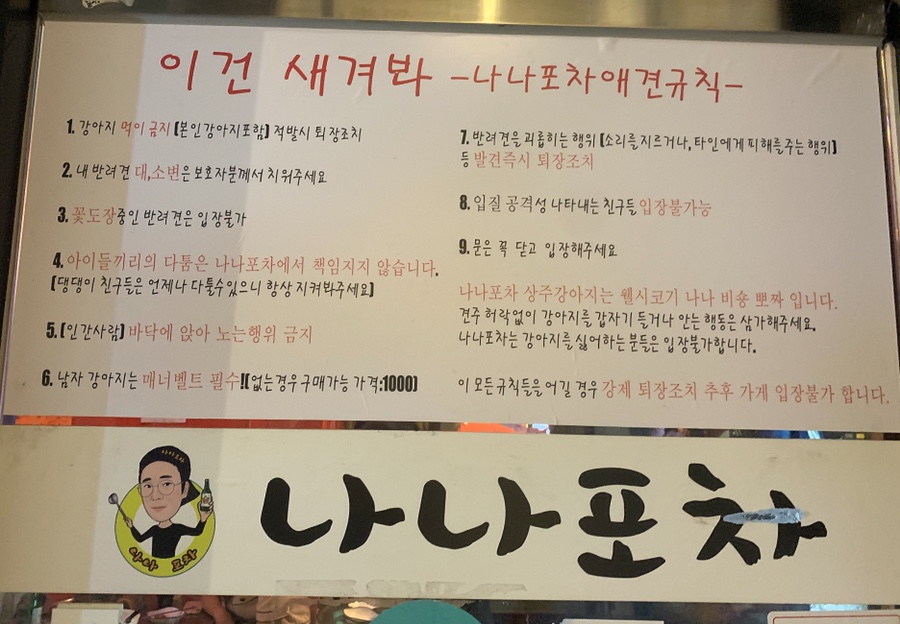 이건 새겨봐 -나나포차애견규칙-
1. 강아지 먹이 금지 (본인강아지포함) 적발시 퇴장조치
2. 내 반려견 대,소변은 보호자분께서 치워주세요
3. 꽃도장중인 반려견은 입장불가
4. 아이들끼리의 다툼은 나나포차에서 책임지지 않습니다.
(댕댕이 친구들은 언제나 다툴수있으니 항상 지켜봐주세요)
5. (인간사람) 바닥에 앉아 노는행위 금지
6. 남자 강아지는 매너벨트 필수!(없는경우구매가능 가격:1000)
7. 반려견을 괴롭히는 행위 (소리를지르거나, 타인에게 피해를주는 행위)
등 발견즉시 퇴장조치
8. 입질 공격성 나타내는 친구들 입장불가능
9. 문은 꼭 닫고 입장해주세요
나나포차 상주강아지는 웰시코기 나나 비숑 뽀짜 입니다.
견주 허락없이 강아지를 갑자기 들거나 안는 행동은 삼가해주세요.
나나포차는 강아지를 싫어하는분들은 입장불가합니다.
이 모든규칙들을 어길 경우 강제 퇴장조치 추후 가게 입장불가 합니다.
나나포차